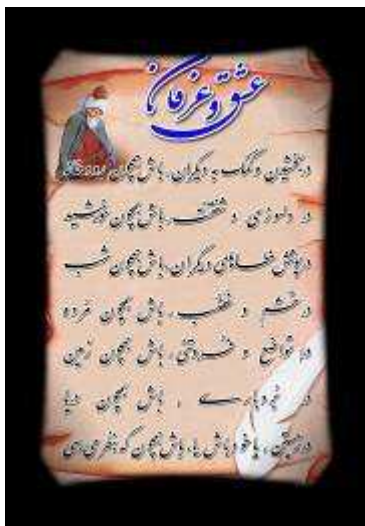 عشق و عرفان
در بخشیدن و کمک به دیگران، باش همچون رود
در دلسوزی و شفقت، باش همچون خورشید
در پوشش خطاهای دیگران، باش همچون شب
در خشم و غضب، باش همچون مرده
در تواضع و فروتنی، باش همچون زمین
در بردباری، باش همچون دریا
در زیستن، یا خود باش یا، باش همچون که بنظر می رسی